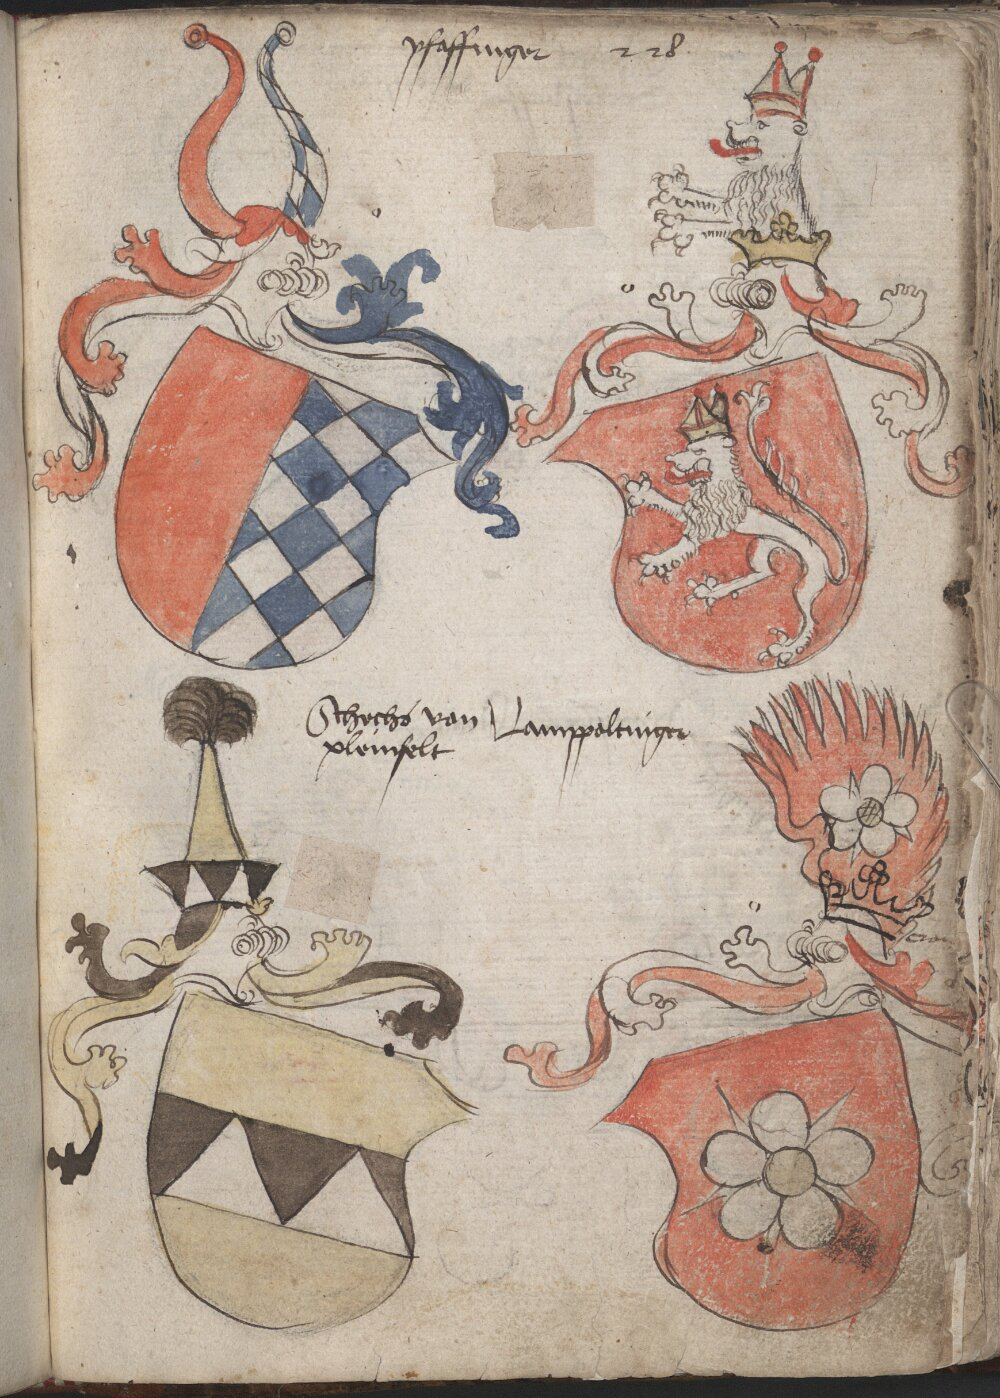 pfaffinger 228
Schechs van
pleinfelt
Lamppoltinger